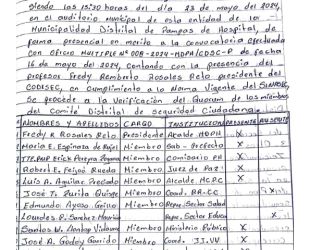 Siendo las 15:30 horas del día 23 de mayo del 2024,
en el auditorio municipal de esta entidad de la
Municipalidad Distrital de Pampas de Hospital, de
forma presencial en merito a la convocatoria efectuada
con OFICIO MULTIPLE Nº 008-2024-MDPH/CODISEC-P de fecha
16 de mayo del 2024, contando con la presencia del
profesor Fredy Remberto Rosales Polo presidente del
CODISEC, en cumplimiento a la Norma Vigente del SINASEC,
se procede a la Verificación del Quorum de los miembros
del Comité Distrital de Seguridad Ciudadana
NOMBRES Y APELLIDOS CARGO INSTITUCION PRESENTE AUSENTE
Fredy R. Rosales Polo Presidente Alcalde MDPH X
María E. Espinoza de Miembro Sub-Prefecto X
Erick Pereyra Miembro Comisario PH X
Robert E. Feijoó Rueda Miembro Juez de Paz X
Luis A. Aguilar Preciado Miembro Alcalde MCPC X
José T. Purilla Quiroz Miembro Coord. RA-CC X
Edmundo Ayosa Miembro Repre. Sector Salud
Lourdes P. Sanchez Miembro Repre. Sector Educa X
Santos W. Miembro Ministerio Público X
José A. Godoy Garrido Miembro Coord. JJ.VV X